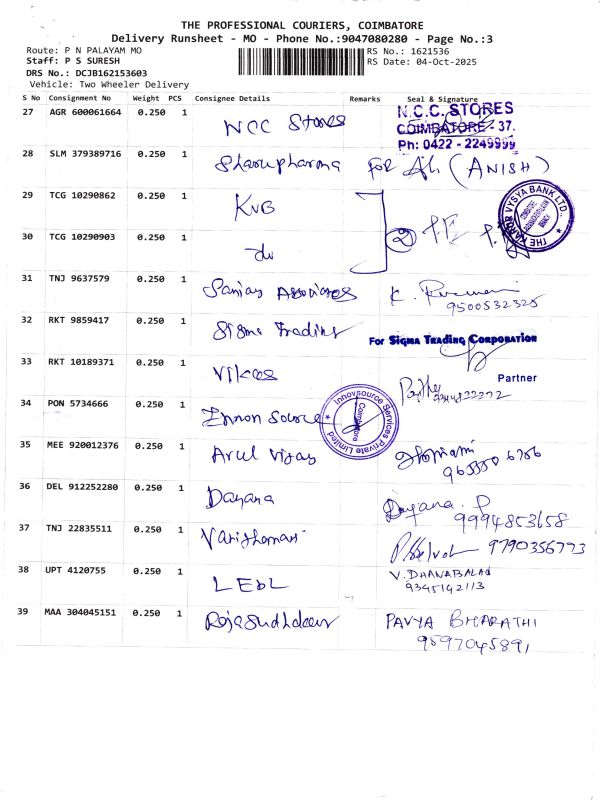 THE PROFESSIONAL COURIERS, COIMBATORE
Delivery Runsheet - MO - Phone No.:9047080280 - Page No.:3
Route: P N PALAYAM MO
RS No.: 1621536
Staff: P S SURESH
RS Date: 04-Oct-2025
DRS No.: DCJB162153603
Vehicle: Two Wheeler Delivery
S No Consignment No Weight PCS Consignee Details Remarks Seal & Signature
27 AGR 600061664 0.250 1 NCC Stores N.C.C. STORES
COIMBATORE - 37.
Ph: 0422 - 2249999
28 SLM 379389716 0.250 1 Sharupharma FOR (ANISH)
29 TCG 10290862 0.250 1 KVB
THE KARUR VYSYA BANK LTD.
30 TCG 10290903 0.250 1 du 2
31 TNJ 9637579 0.250 1 Sanjay Associates K.
9500532325
32 RKT 9859417 0.250 1 Sigma Trading For SIGMA TRADING CORPORATION
Partner
33 RKT 10189371 0.250 1 Vikaas
9344822272
34 PON 5734666 0.250 1 Innon Source Innovsource Services Private Limited
Coimbatore
35 MEE 920012376 0.250 1 Arul Vijay
36 DEL 912252280 0.250 1 Dayana Dayana. P
9994853658
37 TNJ 22835511 0.250 1 9790356773
38 UPT 4120755 0.250 1 LEBL V. DHANABALAN
9345142113
39 MAA 304045151 0.250 1 Rajasudhakar PAVYA BHARATHI
9597045891